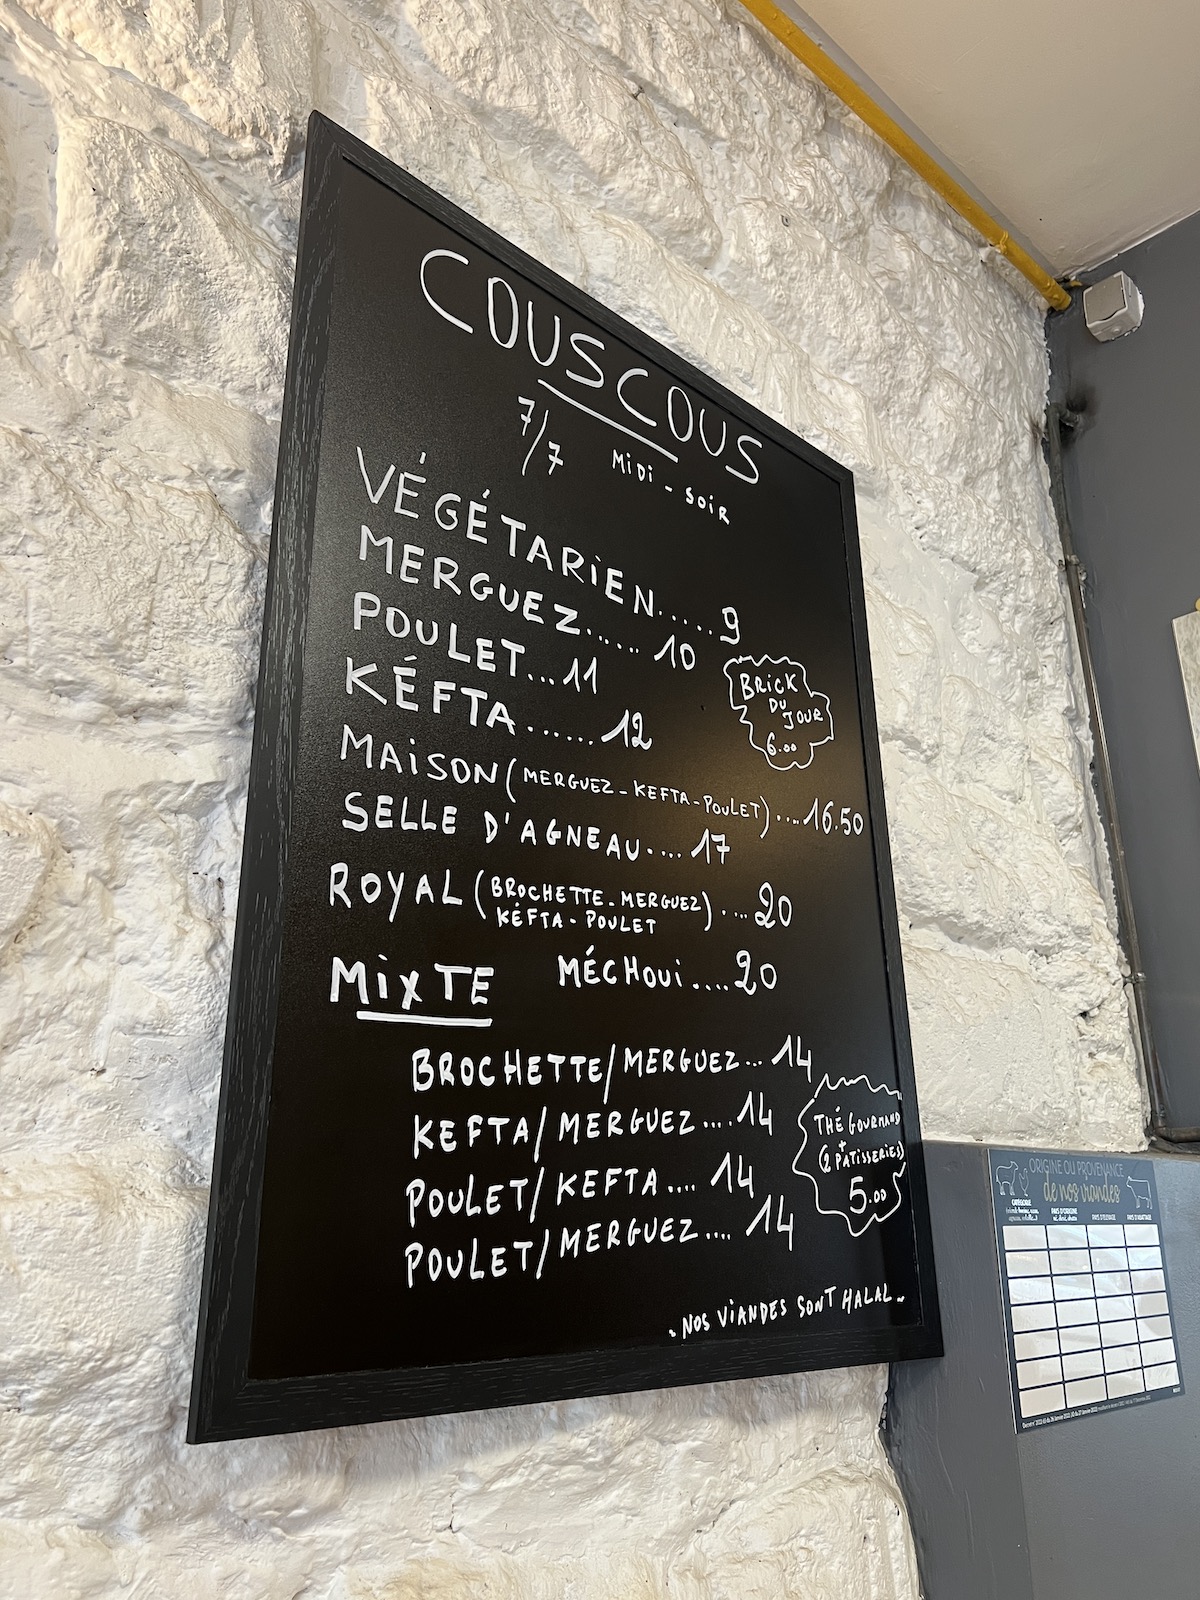 COUSCOUS
7/7 MiDi - SOiR
VÉGÉTARiEN..... 9
MERGUEZ...... 10
POULET... 11
KÉFTA...... 12
BRiCK
DU
JOUR
6.00
MAiSON (MERGUEZ - KEFTA - POULET) .... 16.50
SELLE D'AGNEAU.... 17
ROYAL (BROCHETTE - MERGUEZ) .... 20
KÉFTA - POULET
MÉCHOUi.... 20
MiXTE
BROCHETTE/MERGUEZ... 14
KEFTA/MERGUEZ.... 14
POULET/KEFTA.... 14
POULET/MERGUEZ.... 14
THÉ GOURMAND
+
(2 PATISSERIES)
5.00
. NOS ViANDES SONT HALAL .
ORIGINE OU PROVENANCE
de nos viandes
CATÉGORIE PAYS D'ORIGINE PAYS D'ÉLEVAGE PAYS D'ABATTAGE